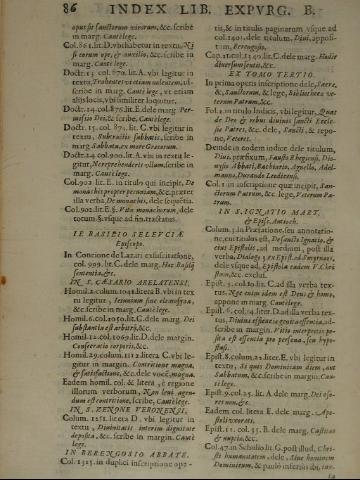 86 INDEX LIB. EXPVRG. B.
opus sit sanctorum virorum, &c. scribe
in marg. Caute lege.
Col. 861. lit. D. vbi habetur in textu, Ni
si eorum ope, & auxilio, &c. scribe in
marg. Caute lege.
Doctr. 13. col. 870. lit. A. vbi legitur in
scribe in marg. Caute lege, vt etiam
alijs locis, vbi similiter loquitur.
Doctr. 14. col. 878. lit. E. dele marg. Per-
missio Dei, & scribe, Caute lege.
Doctr. 15. col. 871. lit. C. vbi legitur in
textu, scribe in
marg. Sabbata, ex more Græcorum.
Doctr. 24. col. 900. lit. A. vbi in textu le-
gitur, scribe in
marg. Caute lege.
Col. 902. lit. E. in titulo qui incipit, De
monachis propter pecuniam, &c. præter
illa verba, De monachis, dele sequētia.
Col. 902. lit. E. §. Vita monachorum, dele
totum §. vsque ad fin. tractatus.
IE BASILIO SELEVCIÆ
Episcopo.
In Concione de Lazari exsuscitatione,
col. 909. lit. C. dele marg. Hoc Basilij
sententia, &c.
IN S. CÆSARIO ARELATENSI.
Homil. 2. colum. 1041. litera B. vbi in tex
tu legitur,
&c. scribe in marg. Caute lege.
Homil. 6. col. 1050. lit. C. dele marg. Dei
substantia est arbitrij, &c.
Homil. 12. col. 1069. lit. D. dele margin.
Consecratio corporis, &c.
Homil. 29. colum. 1112. litera C. vbi le-
gitur in margin. Contritione magna,
& satisfactione, &c. dele voce, magna.
Eadem homil. col. & litera, è regione
illorum verborum, Non leui agen-
dum est contritione, scribe, Caute lege.
IN S. ZENONE VERONENSI.
Colum. 1251. litera D. vbi legitur in
textu, Diuinitatis interim dignitate
deposita, &c. scribe in margin. Caute
lege.
IN BERENGOSIO ABBATE.
Col. 1315. in duplici inscriptione opa-
tis, & in titulis paginarum vsque ad
col. 1401. dele titulum, Diui, apposi-
tum, Berengosio.
Cap. 1. col. 1340. lit. C. dele marg. Huius
diuersum senti, &c.
EX TOMO TERTIO.
In prima operis inscriptione dele, Sacræ,
&, Sanctorum, & lege, Bibliotheca ve-
terum Patrum, &c.
Fol. 2. in titulo Indicis, vbi legitur, Quæ
de Deo & rebus diuinis sancti Eccle-
siæ Patres, &c. dele, Sancti, & repo-
ne, Veteres.
Deinde in eodem indice dele titulum,
Diui, præfixum, Fausto Rhegiensi, Dio-
nysio Abbati, Bachiario, Agnello, Adel-
manno, Durando Leodiensi.
Col. 1. in suscriptione quæ incipit, San-
ctorum Patrum, &c. lege, Veterum Pa-
trum.
IN S. IGNATIO MART.
& Episc. Antioch.
Colum. 3. in Præfatione, seu annotatio-
ne, cui titulus est, De sancto Ignatio, &
eius Epistolis, ad medium, post illa
verba, Dialog. 3. ex Epist. ad Smyrnæos,
dele vsque ad, Epistolæ eadem V. Chri-
stum, &c. exclus.
Epist. 5. col. 10. lit. C. ad illa verba tex-
tus, Nec enim idem est Deus & homo,
appone in marg. Caute lege.
Epist. 6. col. 14. litter. D. ad illa verba tex-
tus,
scribe in margin.
sita est essentia pro persona, seu hypo-
stasi.
Epist. 8. colum. 22. liter. E. vbi legitur in
textu, Si quis Dominicam diem, aut
Sabbatum, &c. scribe in margin. Cau-
te lege.
Epist. 9. col. 25. lit. A. dele marg. Dei oso-
rem, &c.
Eadem col. litera E. dele marg. Apo-
stoli vxorati.
Epist. 11. col. 35. B. dele marg. Castitas
& nuptiæ, &c.
Col. 47. in Scholijs lit. G. post illud, Chri-
sti humanitatem, dele, Siue hominem
Dominicum, & paulo inferius ibi, tan-